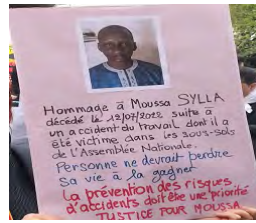 Hommage à Moussa SYLLA
décédé le 12/07/2022 suite à
un accident du travail dont il a
été victime dans les sous-sols
de l'Assemblée Nationale.
Personne ne devrait perdre
sa vie à la gagner
La prévention des risques
d'accidents doit être une priorité
JUSTICE POUR MOUSSA